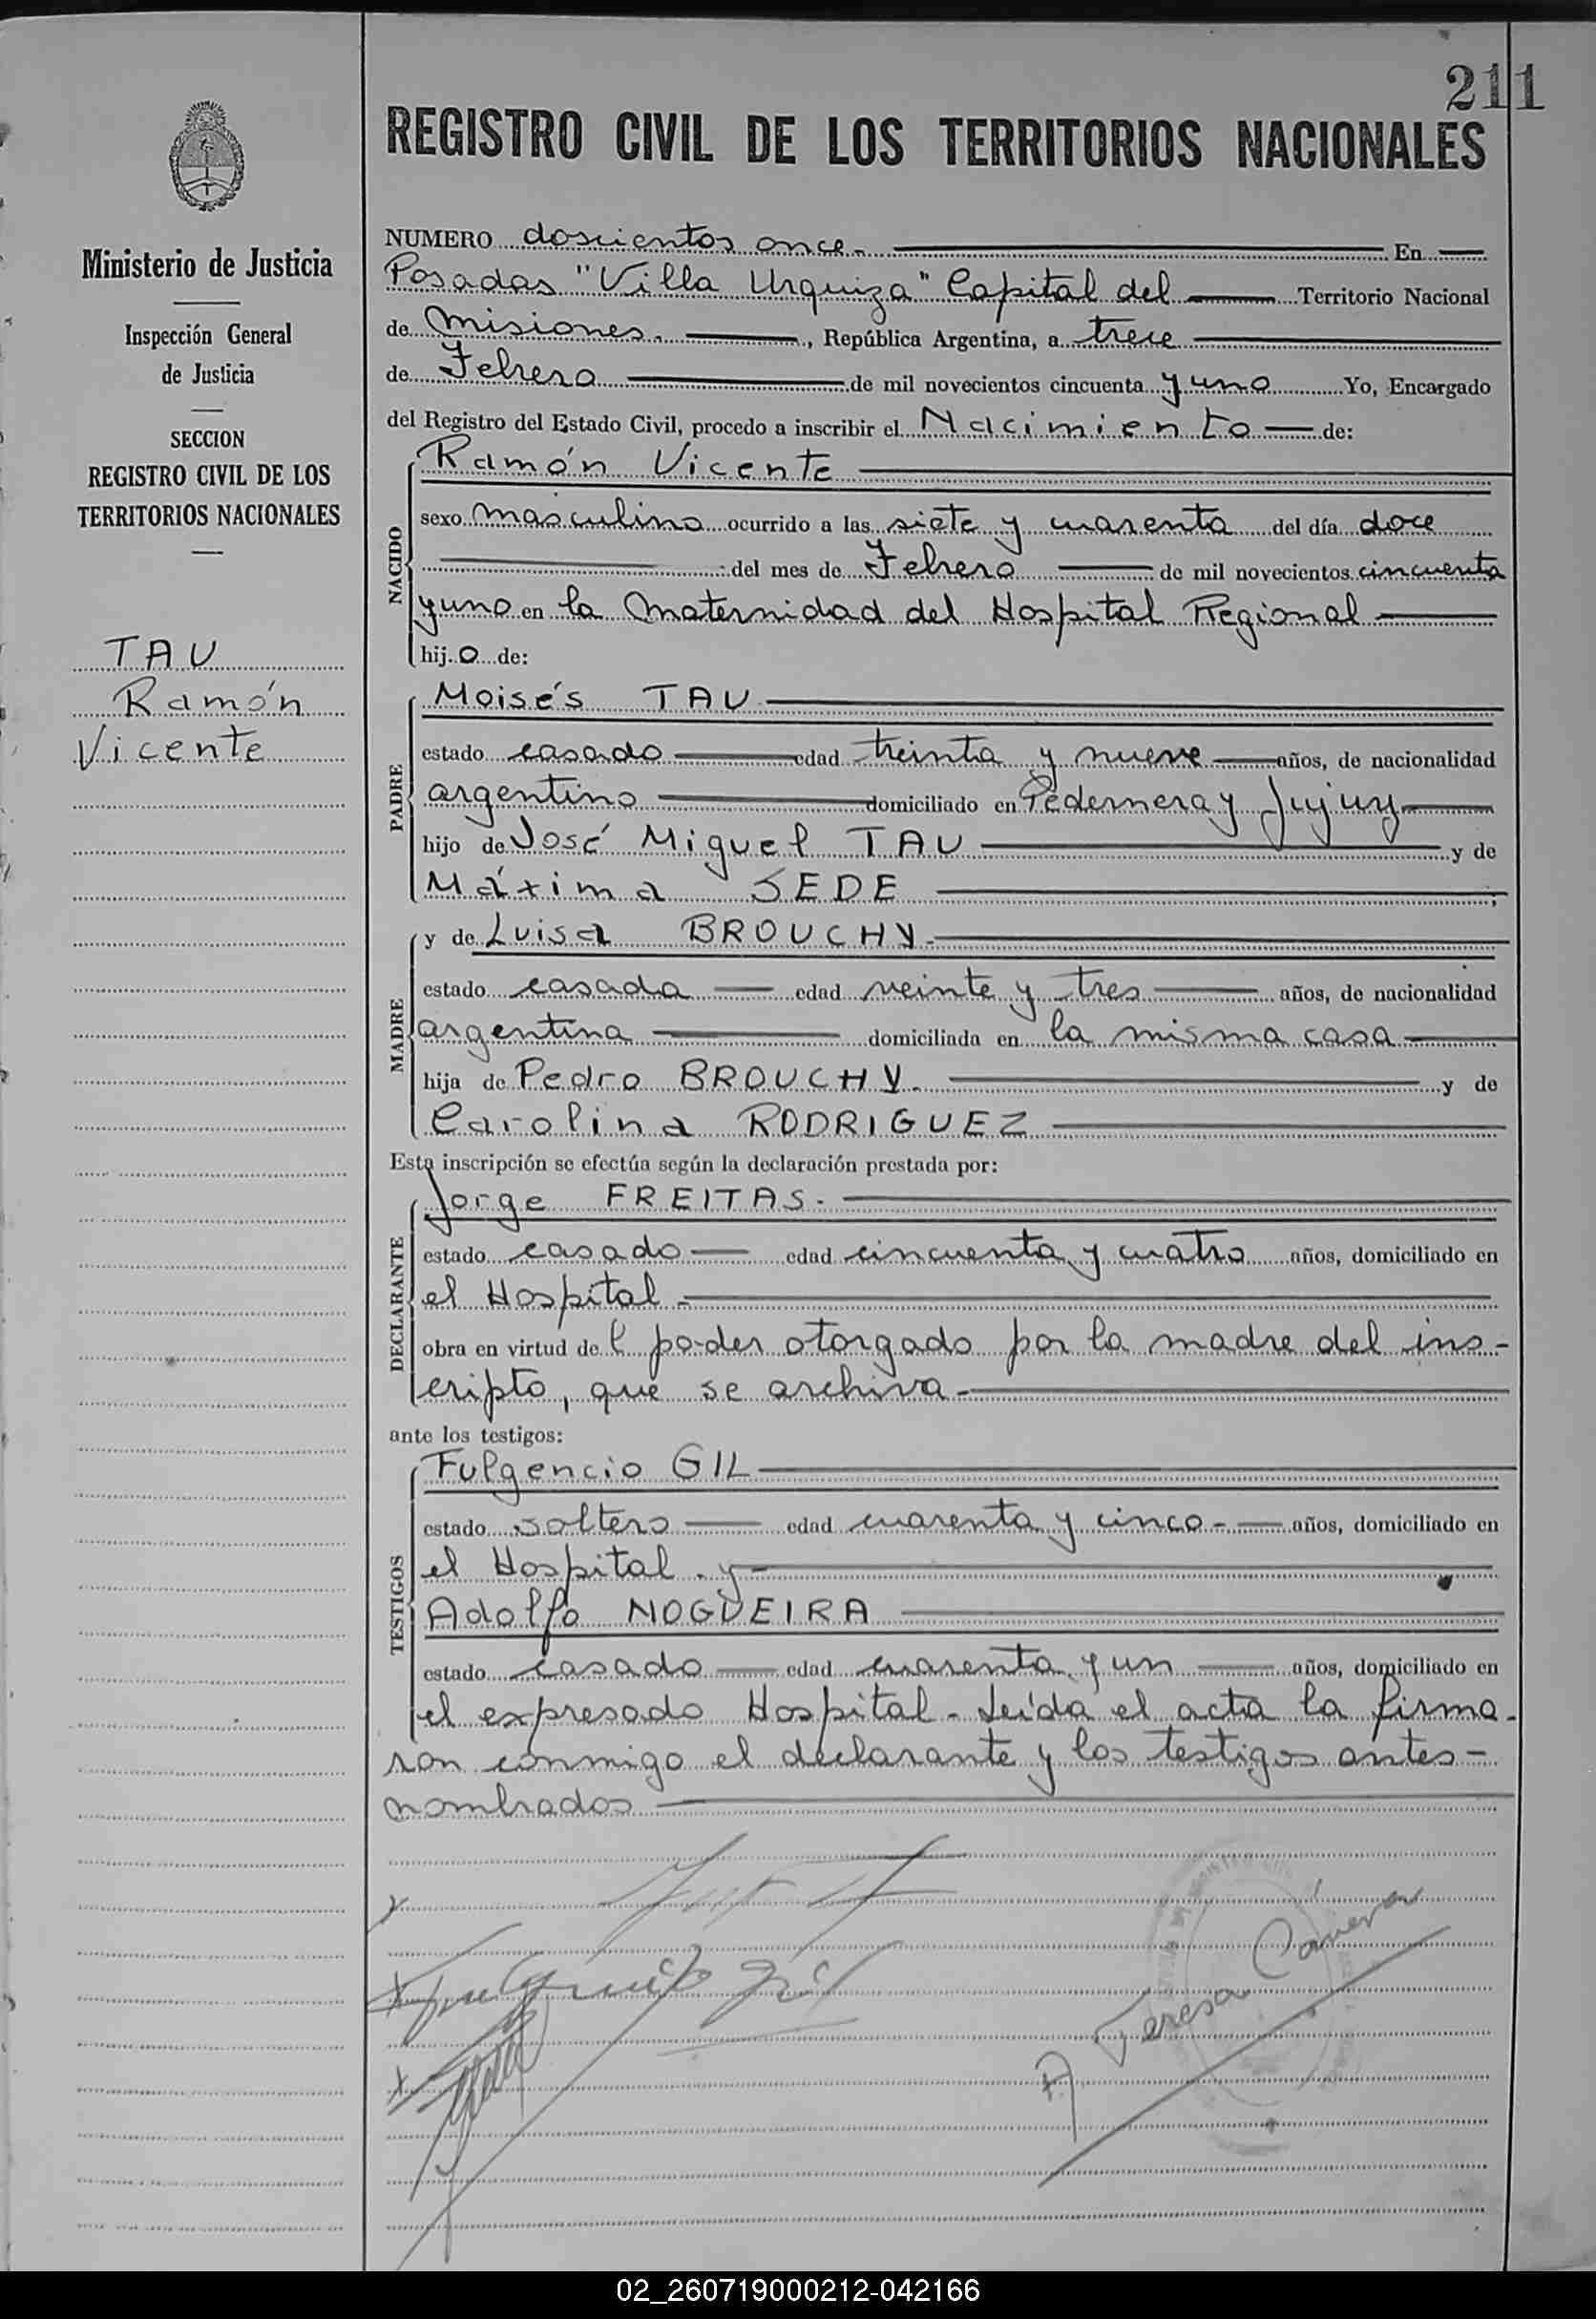 211
REGISTRO CIVIL DE LOS TERRITORIOS NACIONALES
Ministerio de Justicia
Inspección General
de Justicia
SECCION
REGISTRO CIVIL DE LOS
TERRITORIOS NACIONALES
TAU
Ramón
Vicente
NUMERO doscientos once.- En
Posadas "Villa Urquiza" Capital del Territorio Nacional
de Misiones. , República Argentina, a trece
de Febrero de mil novecientos cincuenta y uno Yo, Encargado
del Registro del Estado Civil, procedo a inscribir el Nacimiento de:
NACIDO
Ramón Vicente
sexo masculino ocurrido a las siete y cuarenta del día doce
del mes de Febrero de mil novecientos cincuenta
y uno en la Maternidad del Hospital Regional
hijo de:
PADRE
Moisés TAU
estado casado edad treinta y nueve años, de nacionalidad
argentino domiciliado en Pedernera y Jujuy
hijo de José Miguel TAU y de
Máxima SEDE
MADRE
y de Luisa BROUCHY.
estado casada edad veinte y tres años, de nacionalidad
argentina domiciliada en la misma casa
hija de Pedro BROUCHY. y de
Carolina RODRIGUEZ
Esta inscripción se efectúa según la declaración prestada por:
DECLARANTE
Jorge FREITAS.
estado casado edad cincuenta y cuatro años, domiciliado en
el Hospital.
obra en virtud del poder otorgado por la madre del ins-
cripto, que se archiva.-
ante los testigos:
TESTIGOS
Fulgencio GIL
estado soltero edad cuarenta y cinco.- años, domiciliado en
el Hospital . y
Adolfo NOGUEIRA
estado casado edad cuarenta y un años, domiciliado en
el expresado Hospital.- Leída el acta la firma-
ron conmigo el declarante y los testigos antes-
nombrados
Fulgencio Gil
A Teresa
02_260719000212-042166